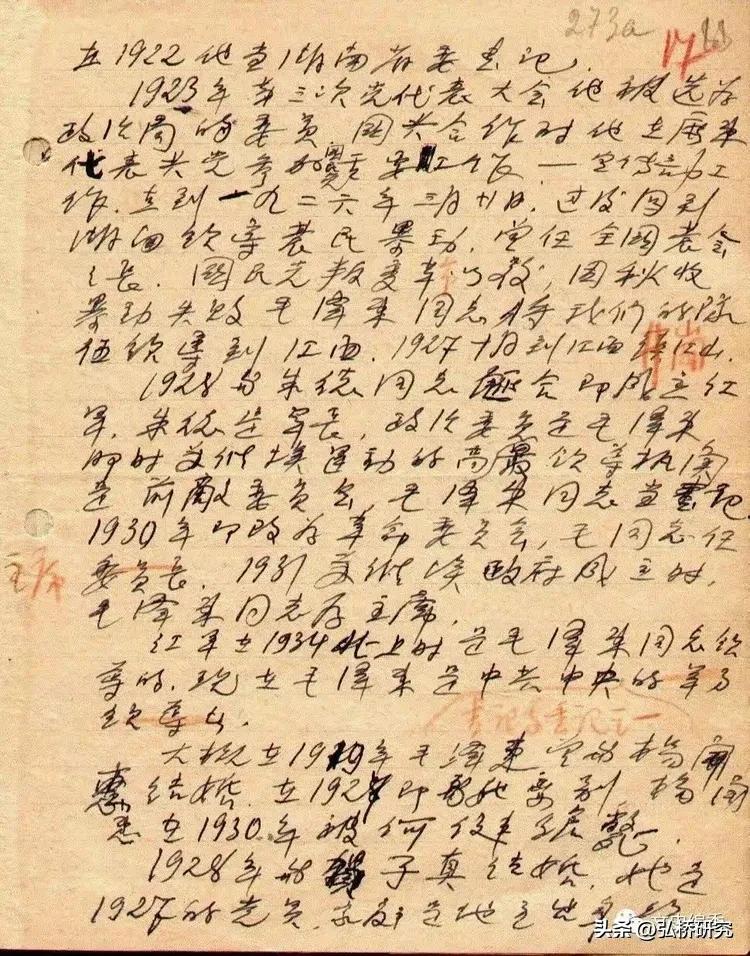 273a
17
在1922他当湖南省委书记.
1923年第三次党代表大会他被选为
政治局的委员 国共合作时他在广东
代表共党参加 党 工作 — 宣传部工
作. 直到一九二六年三月廿日. 过后回到
湖南领导农民暴动. 曾任全国农会
会长. 国民党叛变革命以后, 因秋收
暴动失败毛泽东同志将我们的队
伍领导到江西. 1927十月到江西井岗山.
1928与朱德同志汇合即成立红
军. 朱德是军长, 政治委员是毛泽东
即时苏维埃运动的高最领导机关
是前敌委员会, 毛泽东同志当书记.
1930年即改为革命委员会, 毛同志任
主席
委员长. 1931苏维埃政府成立时,
毛泽东同志为主席.
红军在1934北上时是毛泽东同志领
导的. 现在毛泽东是中共中央的
领导人.
书记与书记之一
大概在1919年毛泽东 杨开
惠结婚. 在1927即 她要别 杨开
惠在1930年被何健 .
1928年 子真结婚. 她是
1927的党员, 家庭是地主出
头条 @弘侨研究